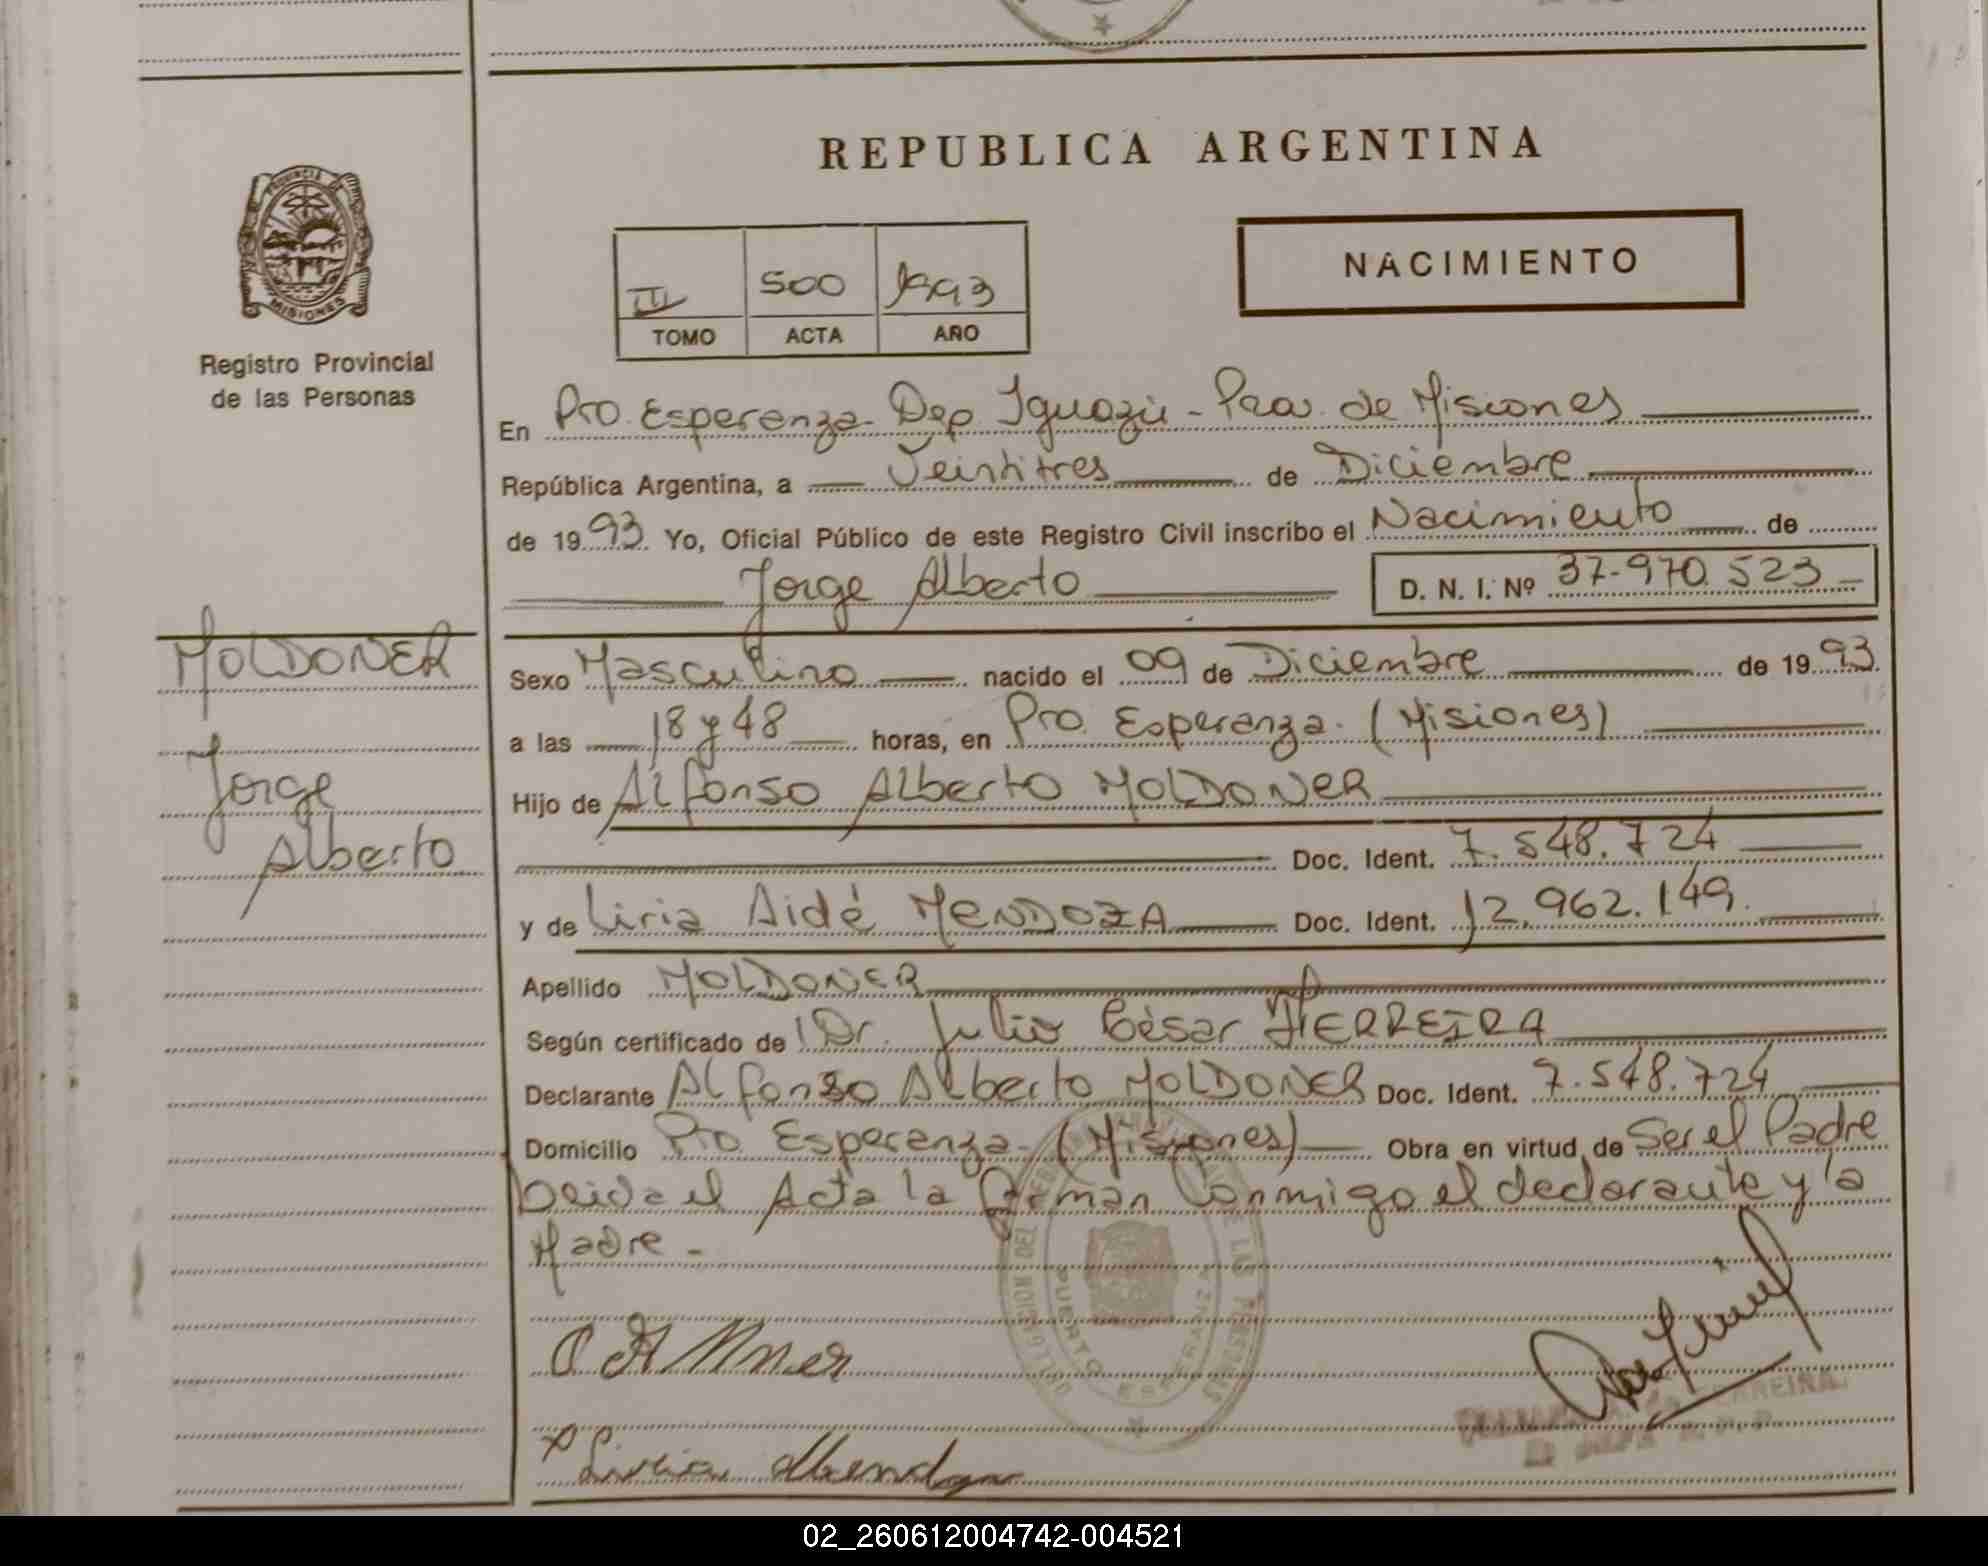 REPUBLICA ARGENTINA
PROVINCIA DE MISIONES
Registro Provincial
de las Personas
III 500 1993
TOMO ACTA AÑO
NACIMIENTO
En Pto. Esperanza - Dep Iguazú - Pcia. de Misiones
República Argentina, a Veintitres de Diciembre
de 1993 Yo, Oficial Público de este Registro Civil inscribo el Nacimiento de
Jorge Alberto D. N. I. Nº 37.970.523
MOLDONER
Jorge
Alberto
Sexo Masculino nacido el 09 de Diciembre de 1993
a las 18 y 48 horas, en Pto. Esperanza. (Misiones)
Hijo de Alfonso Alberto MOLDONER
Doc. Ident. 7.548.724
y de Liria Aidé MENDOZA Doc. Ident. 12.962.149.
Apellido MOLDONER
Según certificado de Dr. Julio César FERREIRA
Declarante Alfonso Alberto MOLDONER Doc. Ident. 7.548.724
Domicilio Pto Esperanza - (Misiones) Obra en virtud de Ser el Padre
Leida el Acta la firman conmigo el declarante y la
Madre -
PUERTO ESPERANZA
02_260612004742-004521